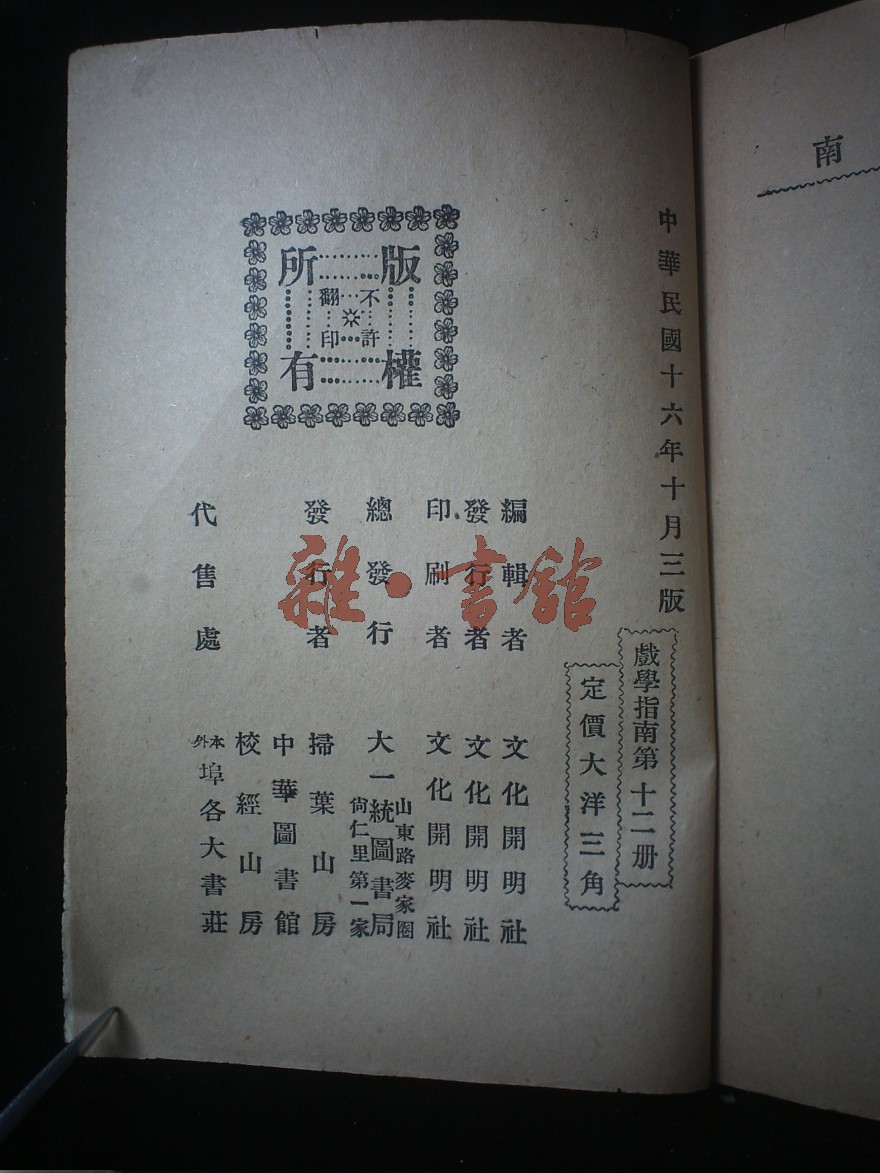 南
中華民國十六年十月三版
戲學指南第十二册
定價大洋三角
編輯者 文化開明社
發行者 文化開明社
印刷者 文化開明社
總發行 大一統圖書局
山東路麥家圈
尙仁里第一家
發行者 掃葉山房
中華圖書館
校經山房
代售處 本外埠各大書莊
版權
所有
不許
翻印
雜·書館